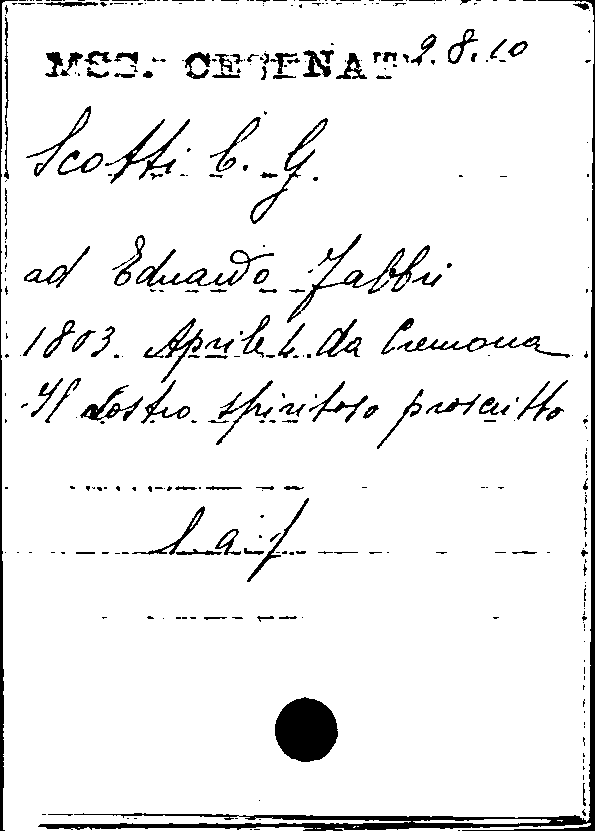 MSS. CESENAT 9.8.10
Scotti C. G.
ad Eduardo Fabbri
1803. Aprile 4. da Cremona
Il vostro spiritoso proscritto
l. a. f